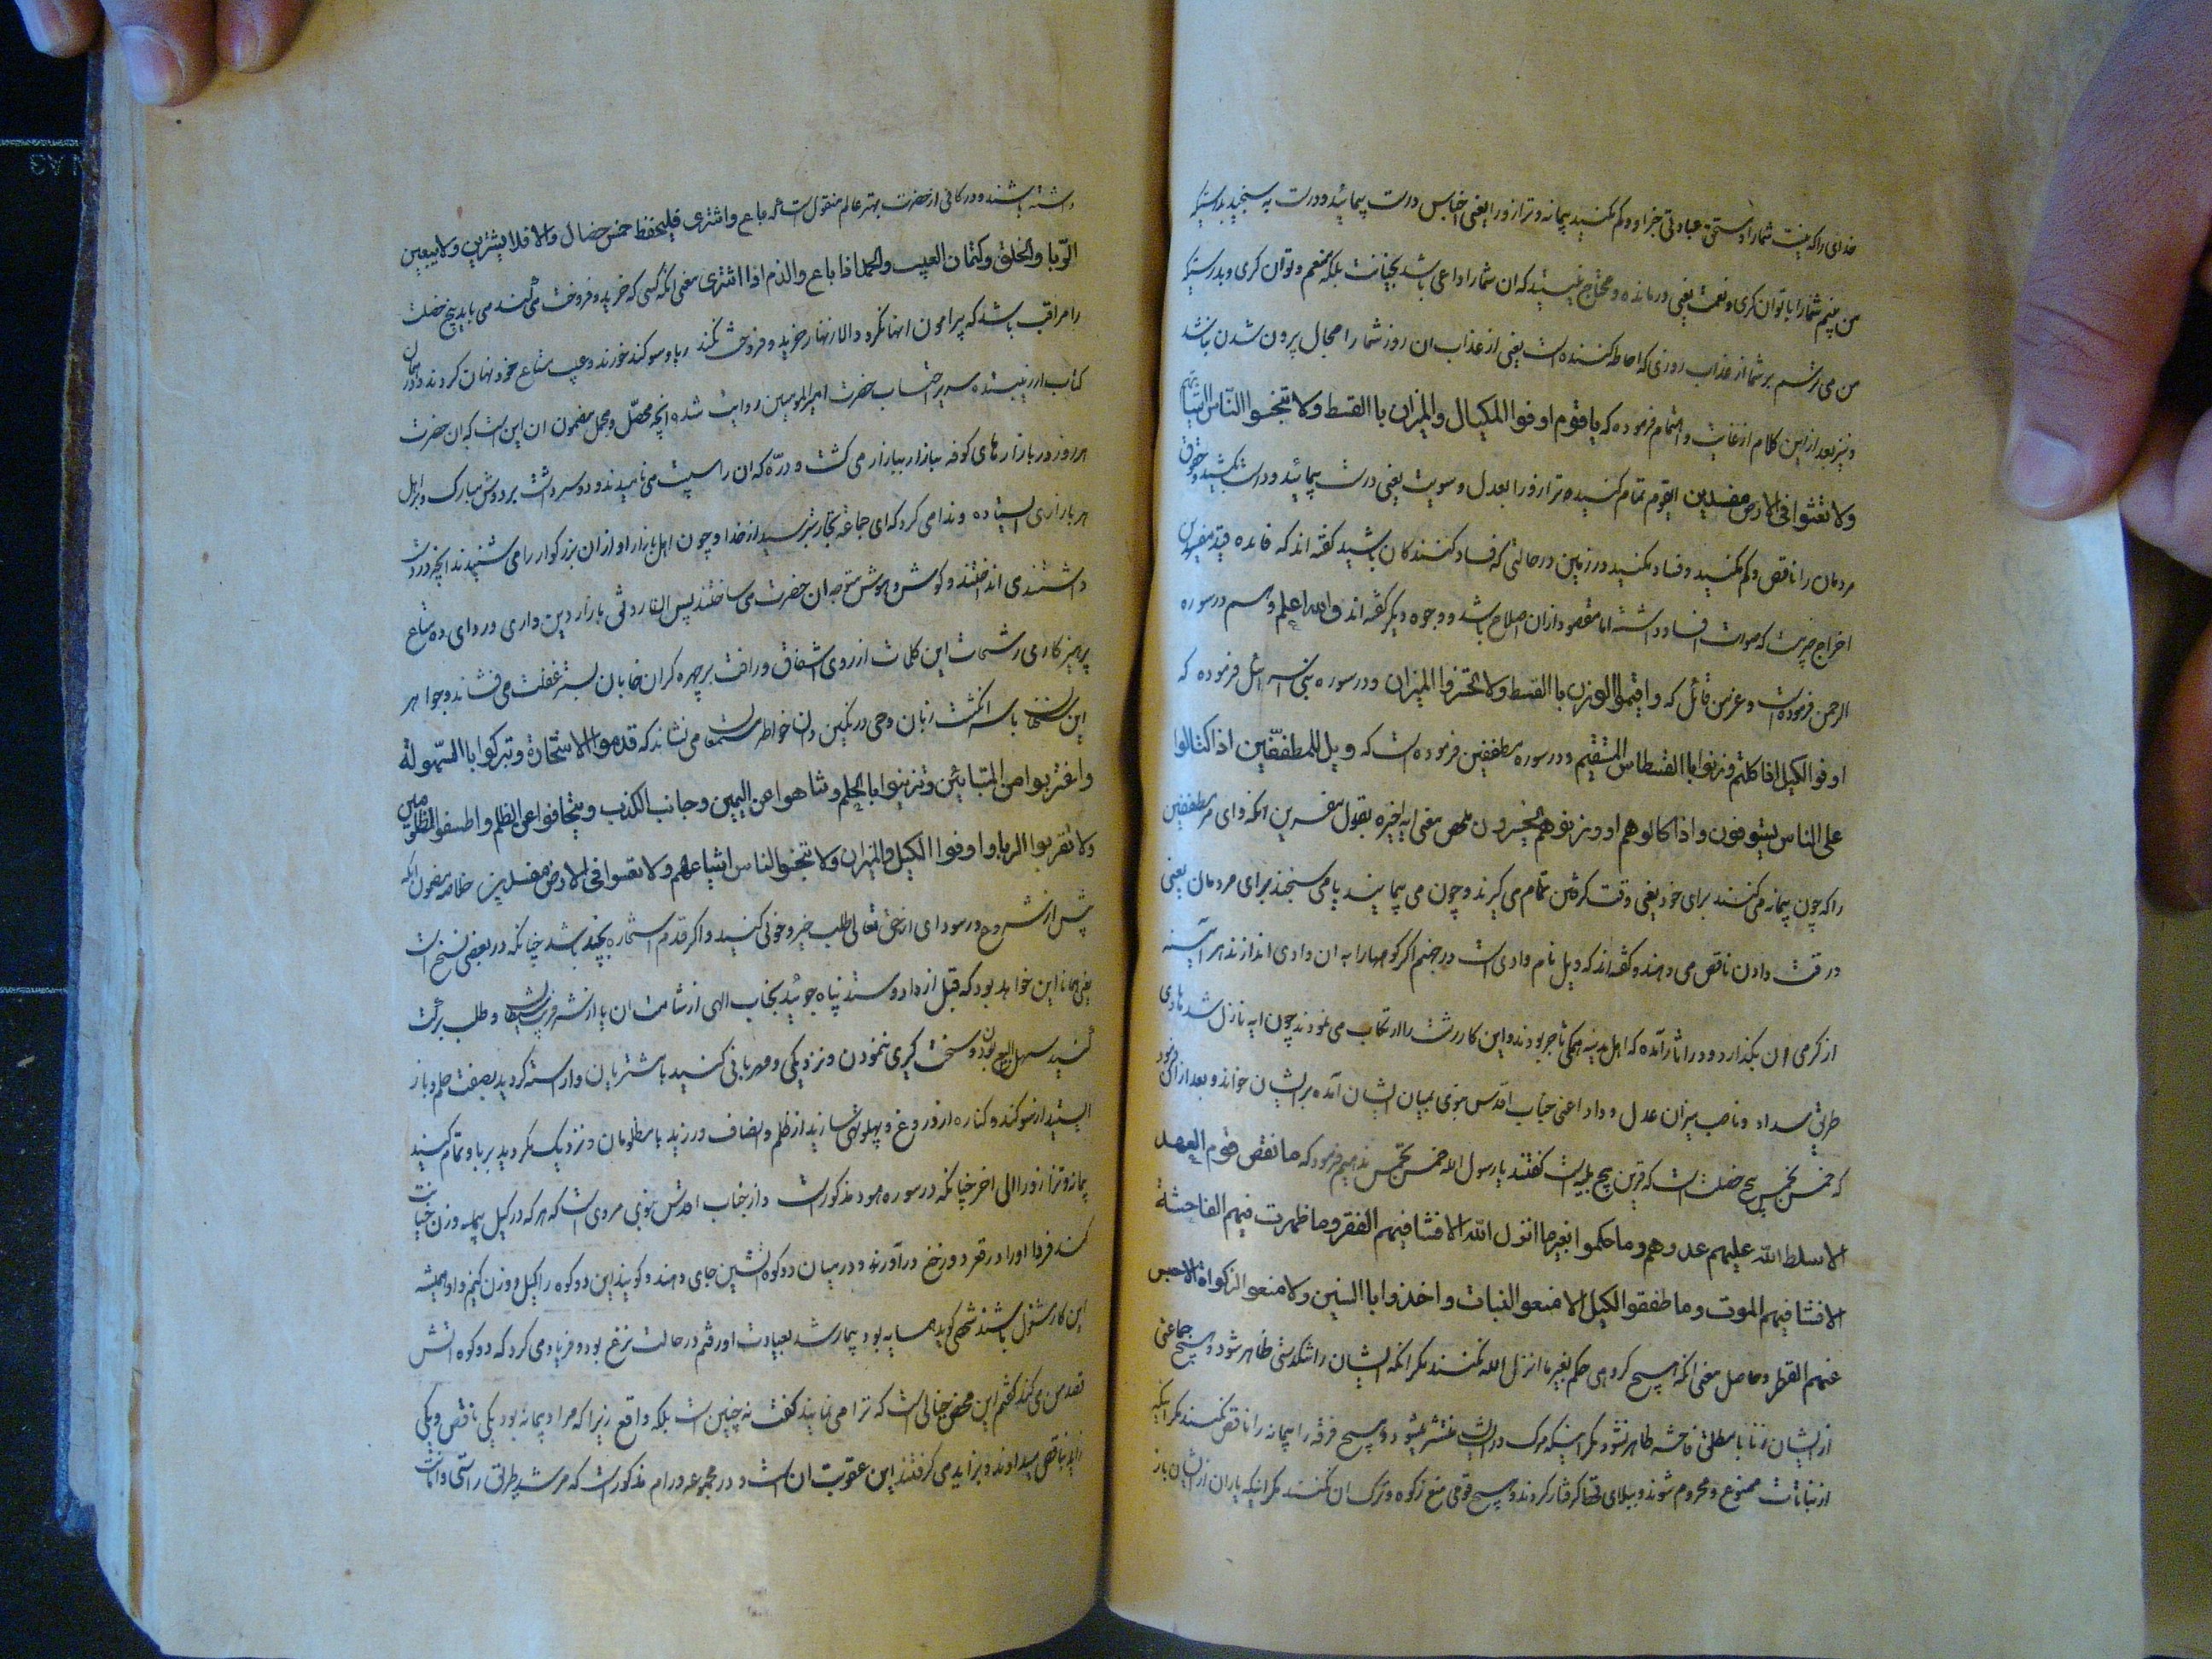 خدای را که نیست شما را مستحق عبادتی جز او و کم مکنید پیمانه و ترازو را یعنی اجناس درست پیمائید و درست به سنجید بدرستیکه
من میبینم شما را با توان کری و نعمت یعنی درمانده و محتاج نیستید که ان شما را داعی باشد بخیانت بلکه منعم و توان کری و بدرستیکه
من می ترسم بر شما از عذاب روزی که احاطه کننده است یعنی از عذاب ان روز شما را مجال بیرون شدن نباشد
و نیز بعد از این کلام از غایت اهتمام فرموده که یا قوم اوفوا المکیال والمیزان باالقسط ولا تبخسوا الناس اشیائهم
ولا تعثوا فی الارض مفسدین ایقوم تمام کنید ترازو را بعدل و سویت یعنی درست پیمائید و حقوق
مردمان را ناقص و کم مکنید و فساد مکنید در زمین در حالتی که فساد کنندکان باشید کفته اند که فایده قید مفسدین
اخراج چیزیست که صورت افساد داشته اما مقصود از ان اصلاح باشد و وجوه دیکر کفته اند والله اعلم وهم در سوره
الرحمن فرموده است و عز من قائل که واقیموا الوزن باالقسط ولا تخسروا المیزان و در سوره بنی اسرائیل فرموده که
اوفوا الکیل اذا کلتم وزنوا باالقسطاس المستقیم و در سوره مطففین فرموده است که ویل للمطففین اذا اکتالوا
علی الناس یستوفون واذا کالوهم او وزنوهم یخسرون ملخص معنی ایه اخیره بقول مفسرین انکه وای مر مطففین
را که چون پیمانه می کنند برای خود یعنی وقت کرفتن تمام می کیرند و چون می پیمایند یا می سنجند برای مردمان یعنی
در وقت دادن ناقص می دهند و کفته اند که ویل نام وادی است در جهنم اکر کوهها را به ان وادی اندازند هر آینه
از کرمی ان بکدازد و در اثار آمده که اهل مدینه همکی تاجر بودند و این کار زشت را ارتکاب می نمودند چون ایه نازل شد هادی
طریق سداد و ناصب میزان عدل و داد اعنی جناب اقدس نبوی بمیان ایشان آمده بر ایشان خواند و بعد از ان فرمود
که خمس بخمس پنج خصلت است که قرین پنج بلیه است کفتند یا رسول الله خمس بخمس ندانیم فرمود که ما نقض قوم العهد
الا سلط الله علیهم عدوهم وما حکموا بغیر ما انزل الله الا فشا فیهم الفقر وما ظهرت فیهم الفاحشة
الا فشا فیهم الموت وما طففوا الکیل الا منعوا النبات واخذوا باالسنین ولا منعوا الزکواة الا حبس
عنهم القطر و حاصل معنی انکه هیچ کروهی حکم بغیر ما انزل الله نکنند مکر انکه ایشان را تنکدستی ظاهر شود و هیچ جماعتی
از ایشان زنا یا مطلق فاحشه ظاهر نشود مکر اینکه مرک در ایشان منتشر میشود و هیچ فرقه را پیمانه را ناقص نکنند مکر اینکه
از نباتات ممنوع و محروم شوند و ببلای قحط کرفتار کردند و هیچ قومی منع زکوه و ترک ان نکنند مکر اینکه باران از ایشان باز
داشته باشند و در کافی از حضرت مهتر عالم منقول است که من باع واشتری فلیحفظ خمس خصال والا فلا یشترین ولا یبیعن
الربا والحلف وکتمان العیب والحمد اذا باع والذم اذا اشتری معنی انکه کسی که خرید و فروخت می کند می باید پنج خصلت
را مراقب باشد که پیرامون انها نکردد والا زنهار خرید و فروخت نکند ربا و سوکند خوردن و عیب متاع خود نهان کردن و در همان
کتاب ارزیبنده سریر احتساب حضرت امیرالمومنین روایت شده انچه محصل و مجمل مضمون ان این است که ان حضرت
هر روز در بازارهای کوفه ببازار ببازار می کشت و درّه که ان را سبیبه می نامیدند و دو سر داشت بر دوش مبارک و بر اهل
هر بازاری ایستاده و ندا می کرد که ای جماعه تجار بترسید از خدا و چون اهل بازار اواز ان بزرکوار را می شنیدند انچه در دست
داشتندی انداختند و کوش و هوش متوجه ان حضرت می ساختند پس ان بازار دین داری و ردای ده متاع
پرهیزکاری رشحات این کلمات از روی اشفاق و رافت بر چهره کران خوابان بستر غفلت می فشاند و جواهر
این سخنان با سر انکشت زبان وحی در نکین دان خواطر مستمعان می نشاند که قدموا الاستخارة وتبرکوا باالسهولة
واقتربوا من المتبایعین وتزینوا بالحلم وتناهوا عن الیمین وجانبوا الکذب وتجافوا عن الظلم وانصفوا المظلومین
ولا تقربوا الربا واوفوا الکیل والمیزان ولا تبخسوا الناس اشیاءهم ولا تعثوا فی الارض مفسدین خلاصه مضمون انکه
پیش از شروع در سودای از حق تعالی طلب خیر و خوبی کنید و اکر قدم استخاره بجیم باشد چنانکه در بعضی نسخ است
یعنی همانا این خواهد بود که قبل از داد و ستد پناه جوئید بجناب الهی از شامت ان یا از شر فریب شیطان و طلب برکت
کنید بسهل البیع بودن و سخت کیری ننمودن و نزدیکی و مهربانی کنید با مشتریان و اراسته کردید بصفت حلم و باز
ایستید از سوکند و کناره از دروغ و پهلو تهی سازید از ظلم و انصاف ورزید با مظلومان و نزدیک مکردید بربا و تمام کنید
پیمانه و ترازو را الی اخر چنانکه در سوره هود مذکور است و از جناب اقدس نبوی مروی است که هر که در کیل پیمانه و وزن خیانت
کند فردا او را در قعر دوزخ درآورند و در میان دو کوه اتشین جای دهند و کویند این دو کوه را کیل و وزن کن و او همیشه
این کار مشغول باشند شخصی کوید همسایه بود بیمار شد بعیادت او رفتم در حالت نزع بود و فریاد می کرد که دو کوه اتش
قصد من می کند کفتم این محض خیالی است که ترا می نمایند کفت نه چنین است بلکه واقع زیرا که مرا دو پیمانه بود یکی ناقص و یکی
زاید بناقص میدادند و بزاید می کرفتند این عقوبت ان است و در مجموعه ورام مذکور است که مرشد طریق راستی و امانت